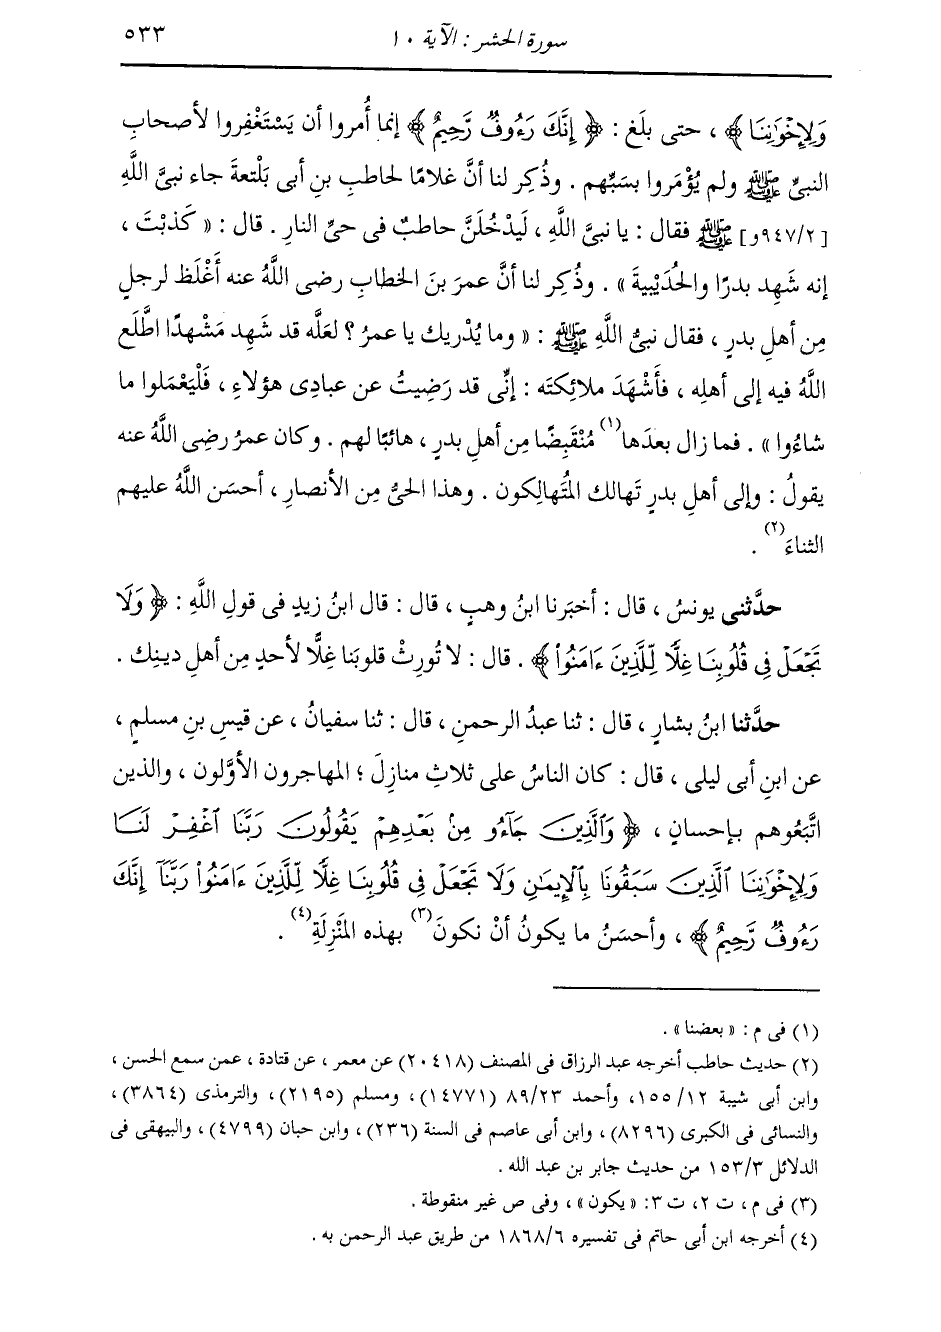 سورة الحشر : الآية ١٠ ٥٣٣
وَلِإِخْوَٰنِنَا ﴾ ، حتى بلَغ : ﴿ إِنَّكَ رَءُوفٌ رَّحِيمٌ ﴾ إنما أُمروا أن يَسْتَغْفِروا لأصحابِ
النبىِّ ﷺ ولم يُؤْمَروا بسَبِّهم . وذُكِر لنا أنَّ غلامًا لحاطبِ بنِ أبى بَلْتعةَ جاء نبىَّ اللَّهِ
[٩٤٧/٢و] ﷺ فقال : يا نبىَّ اللَّهِ ، لَيَدْخُلَنَّ حاطبٌ فى حىِّ النارِ . قال : « كَذبْتَ ،
إنه شَهِد بدرًا والحُدَيْبيةَ » . وذُكِر لنا أنَّ عمرَ بنَ الخطابِ رضى اللَّهُ عنه أَغْلَظ لرجلٍ
مِن أهلِ بدرٍ ، فقال نبىُّ اللَّهِ ﷺ : « وما يُدْريك يا عمرُ ؟ لعَلَّه قد شَهِد مَشْهدًا اطَّلَع
اللَّهُ فيه إلى أهلِه ، فأَشْهَدَ ملائكتَه : إنِّى قد رَضِيتُ عن عبادِى هؤلاءِ ، فَلْيَعْمَلوا ما
شاءُوا » . فما زال بعدَها(١) مُنْقَبِضًا مِن أهلِ بدرٍ ، هائبًا لهم . وكان عمرُ رضِى اللَّهُ عنه
يقولُ : وإلى أهلِ بدرٍ تَهالك المُتَهالِكون . وهذا الحىُّ مِن الأنصارِ ، أحسَن اللَّهُ عليهم
الثناءَ(٢) .
حدَّثنى يونسُ ، قال : أخبَرنا ابنُ وهبٍ ، قال : قال ابنُ زيدٍ فى قولِ اللَّهِ : ﴿ وَلَا
تَجْعَلْ فِى قُلُوبِنَا غِلًّا لِّلَّذِينَ ءَامَنُوا۟ ﴾ . قال : لا تُورِثْ قلوبَنا غِلًّا لأحدٍ مِن أهلِ دينِك .
حدَّثنا ابنُ بشارٍ ، قال : ثنا عبدُ الرحمنِ ، قال : ثنا سفيانُ ، عن قيسِ بنِ مسلمٍ ،
عن ابنِ أبى ليلى ، قال : كان الناسُ على ثلاثِ منازلَ ؛ المهاجرون الأوَّلون ، والذين
اتَّبَعُوهم بإحسانٍ ، ﴿ وَالَّذِينَ جَآءُو مِنۢ بَعْدِهِمْ يَقُولُونَ رَبَّنَا ٱغْفِرْ لَنَا
وَلِإِخْوَٰنِنَا ٱلَّذِينَ سَبَقُونَا بِٱلْإِيمَٰنِ وَلَا تَجْعَلْ فِى قُلُوبِنَا غِلًّا لِّلَّذِينَ ءَامَنُوا۟ رَبَّنَآ إِنَّكَ
رَءُوفٌ رَّحِيمٌ ﴾ ، وأحسَنُ ما يكونُ أنْ نكونَ(٣) بهذه المَنْزِلَةِ(٤) .
(١) فى م : « بعضنا » .
(٢) حديث حاطب أخرجه عبد الرزاق فى المصنف (٢٠٤١٨) عن معمر ، عن قتادة ، عمن سمع الحسن ،
وابن أبى شيبة ١٥٥/١٢، وأحمد ٨٩/٢٣ (١٤٧٧١)، ومسلم (٢١٩٥)، والترمذى (٣٨٦٤)،
والنسائى فى الكبرى (٨٢٩٦)، وابن أبى عاصم فى السنة (٢٣٦)، وابن حبان (٤٧٩٩)، والبيهقى فى
الدلائل ١٥٣/٣ من حديث جابر بن عبد الله .
(٣) فى م ، ت ٢، ت ٣: « يكون » ، وفى ص غير منقوطة .
(٤) أخرجه ابن أبى حاتم فى تفسيره ١٨٦٨/٦ من طريق عبد الرحمن به .